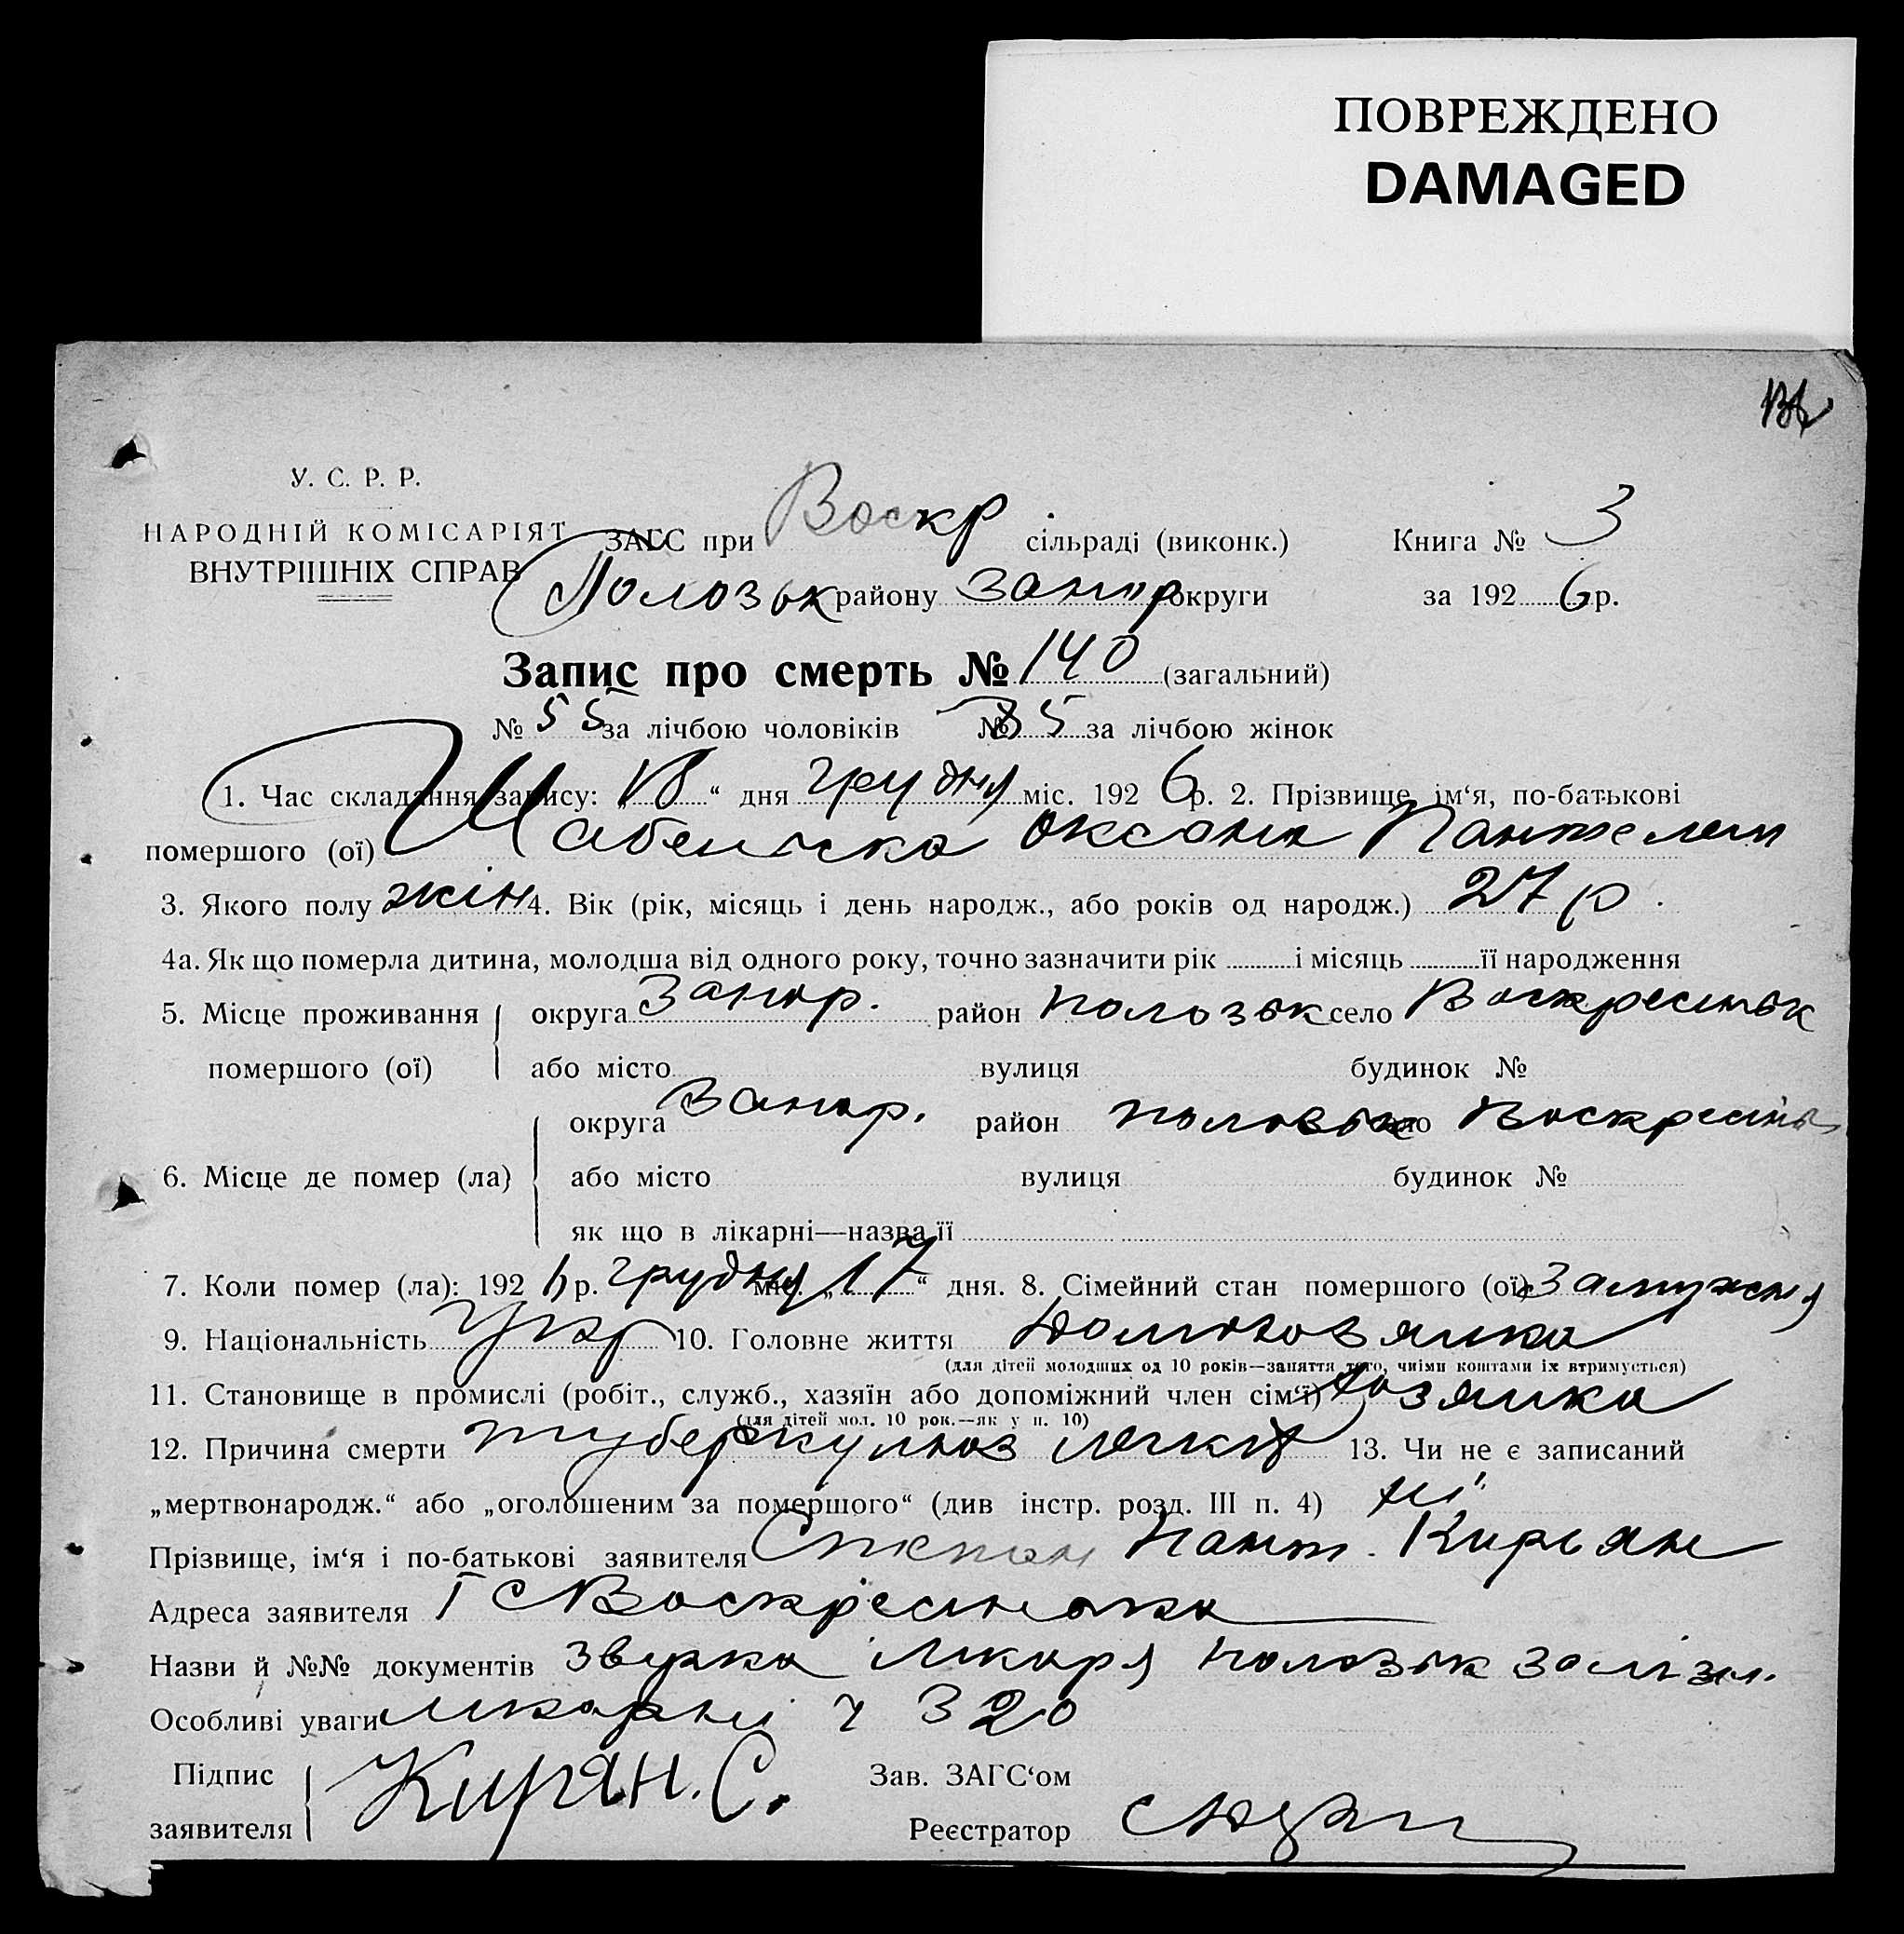 ПОВРЕЖДЕНО
DAMAGED
У. С. Р. Р.
НАРОДНІЙ КОМІСАРІЯТ
ВНУТРІШНІХ СПРАВ
ЗАГС при Воскр сільраді (виконк.) Книга № 3
Полозьк району Запор округи за 1926 р.
Запис про смерть № 140 (загальний)
№ 55 за лічбою чоловіків № 85 за лічбою жінок
1. Час складання запису: „18“ дня грудня міс. 1926 р. 2. Прізвище, ім‘я, по-батькові
помершого (ої) Оксана Пантелем
3. Якого полу жін 4. Вік (рік, місяць і день народж., або років од народж.) 27 р.
4а. Як що померла дитина, молодша від одного року, точно зазначити рік і місяць її народження
5. Місце проживання округа Запор. район Полозьк село Воскресеньк
помершого (ої) або місто вулиця будинок №
округа Запор. район Полозьк село Воскресень
6. Місце де помер (ла) або місто вулиця будинок №
як що в лікарні—назва її
7. Коли помер (ла): 1926 р. грудня міс. „17“ дня. 8. Сімейний стан помершого (ої) Замужня
9. Національність Укр 10. Головне життя Домохозяйка
(для дітей молодших од 10 років—заняття того, чиїми коштами їх втримується)
11. Становище в промислі (робіт., служб., хазяїн або допоміжний член сім‘ї) Хозяйка
(для дітей мол. 10 рок.—як у п. 10)
12. Причина смерти туберкульоз легких 13. Чи не є записаний
„мертвонародж.“ або „оголошеним за помершого“ (див інстр. розд. III п. 4) ні
Прізвище, ім‘я і по-батькові заявителя Степан Пант. Кирьян
Адреса заявителя С Воскресенька
Назви й №№ документів лікаря Полозьк залізн.
Особливі уваги лікарні ч 320
Підпис Кирян. С. Зав. ЗАГС‘ом
заявителя Реєстратор